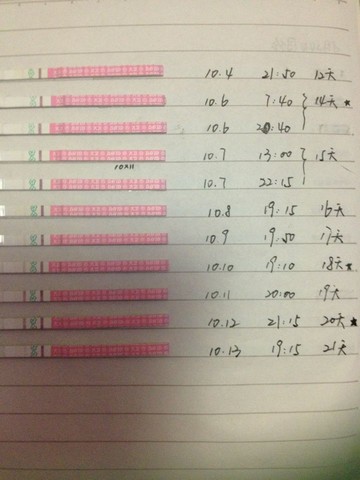 10.4 21:50 12天
10.6 7:40 14天 ★
10.6 20:40
10.7 13:00 15天
10X11
10.7 22:15
10.8 19:15 16天
10.9 19:50 17天
10.10 19:10 18天 ★
10.11 20:00 19天
10.12 21:15 20天 ★
10.13 19:15 21天